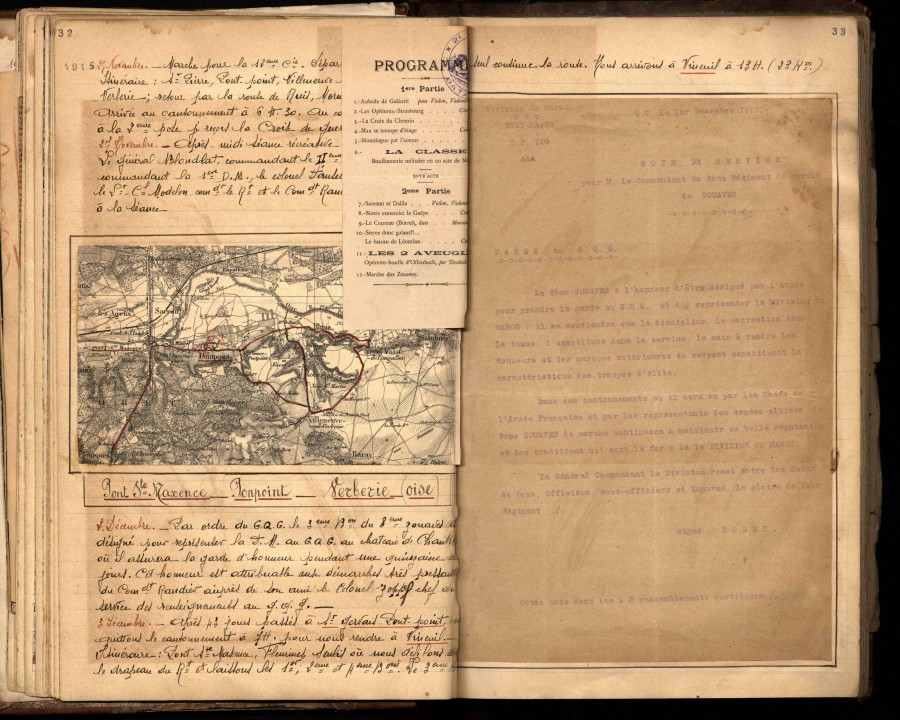 32
1915 25 Novembre. — Marche pour la 12ème Cie.
Itinéraire : St Pierre, Pont point, Villeneuve
Verberie ; retour par la route de
Arrivée au cantonnement à 6 H. 30. Au
à la 2ème pose je reçois la Croix de Guer
27 Novembre. — Après-midi séance récréative
Le général Blondlat, commandant le IIème
commandant la 1ère D.M., le colonel
le Lt Cl Modelon comdt le Rt et le Comdt
à la séance
PROGRAMM
1ère Partie
1.-Aubade de Galéotti pour Violon,
2.-Les Ophicures-Strasbourg
3.-La Croix du Chemin
4.-Max se trompe d'étage
5.-Monologue par l'auteur
6.- LA CLASSE
Bouffonnerie militaire en un acte de
ENTR'ACTE
2eme Partie
7.-Samson et Dalila Violon,
8.-Notre ennemie: la Guêpe
9.-Le Couteau (Botrel), duo
10.-Soyez donc galant!!...
Le bateau de Léontine
11.- LES 2 AVEUGL
Opérette-bouffe d'Offenbach, par
12.-Marche des Zouaves.
Pontpoint
Villeneuve
Pont Ste Maxence _ Ponpoint _ Verberie (oise)
2 Décembre. — Par ordre du G.Q.G. le 3ème Bon du 8ème zouaves
désigné pour représenter la D.M. au G.Q.G. au chateau de
où il assurera la garde d'honneur pendant une quinzaine
jours. Cet honneur est attribuable aux démarches très
du Comdt auprès de son ami le Colonel chef
service des renseignements au G.Q.G. —
3 Décembre. — Après 43 jours passés à St Gervais Pont point,
quittons le cantonnement à 7H. pour nous rendre à Vineuil.
Itinéraire : Pont Ste Maxence, Fleurines Senlis où nous
le drapeau du Rt et laissons les 1er, 2ème et 4ème Bons. Le 3ème
33
seul continue la route. Nous arrivons à Vineuil à 13H. (23 Km)
Division du Maroc
ETAT-MAJOR
Q.G. le 1er Décembre 1915
NOTE DE SERVICE
pour M. le Commandant du 8ème Régiment de Marche
de ZOUAVES
GARDE au G.Q.G.
Le 8ème ZOUAVES a l'honneur d'être désigné par l'Armée
pour prendre la garde au G.Q.G. et d'y représenter la Division du
MAROC ; il se souviendra que la discipline, la correction dans
la tenue, l'exactitude dans le service, le soin à rendre les
Honneurs et les marques extérieures de respect constituent la
caractéristique des troupes d'élite.
Dans ces cantonnements où il sera vu par les Chefs de
l'Armée Française et par les représentants des armées alliées le
8ème ZOUAVES de marche continuera à maintenir sa belle réputation
et les traditions qui sont la force de la DIVISION du MAROC.
Le Général Commandant la Division remet entre les mains
de tous, Officiers, sous-officiers et Zouaves, la gloire de leur
Régiment
signé CODET
Cette note sera lue à 2 rassemblements quotidiens.